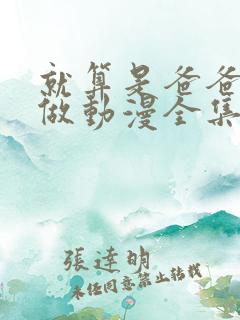 就算是爸爸
做動漫全集
張達明
未經同意禁止轉載